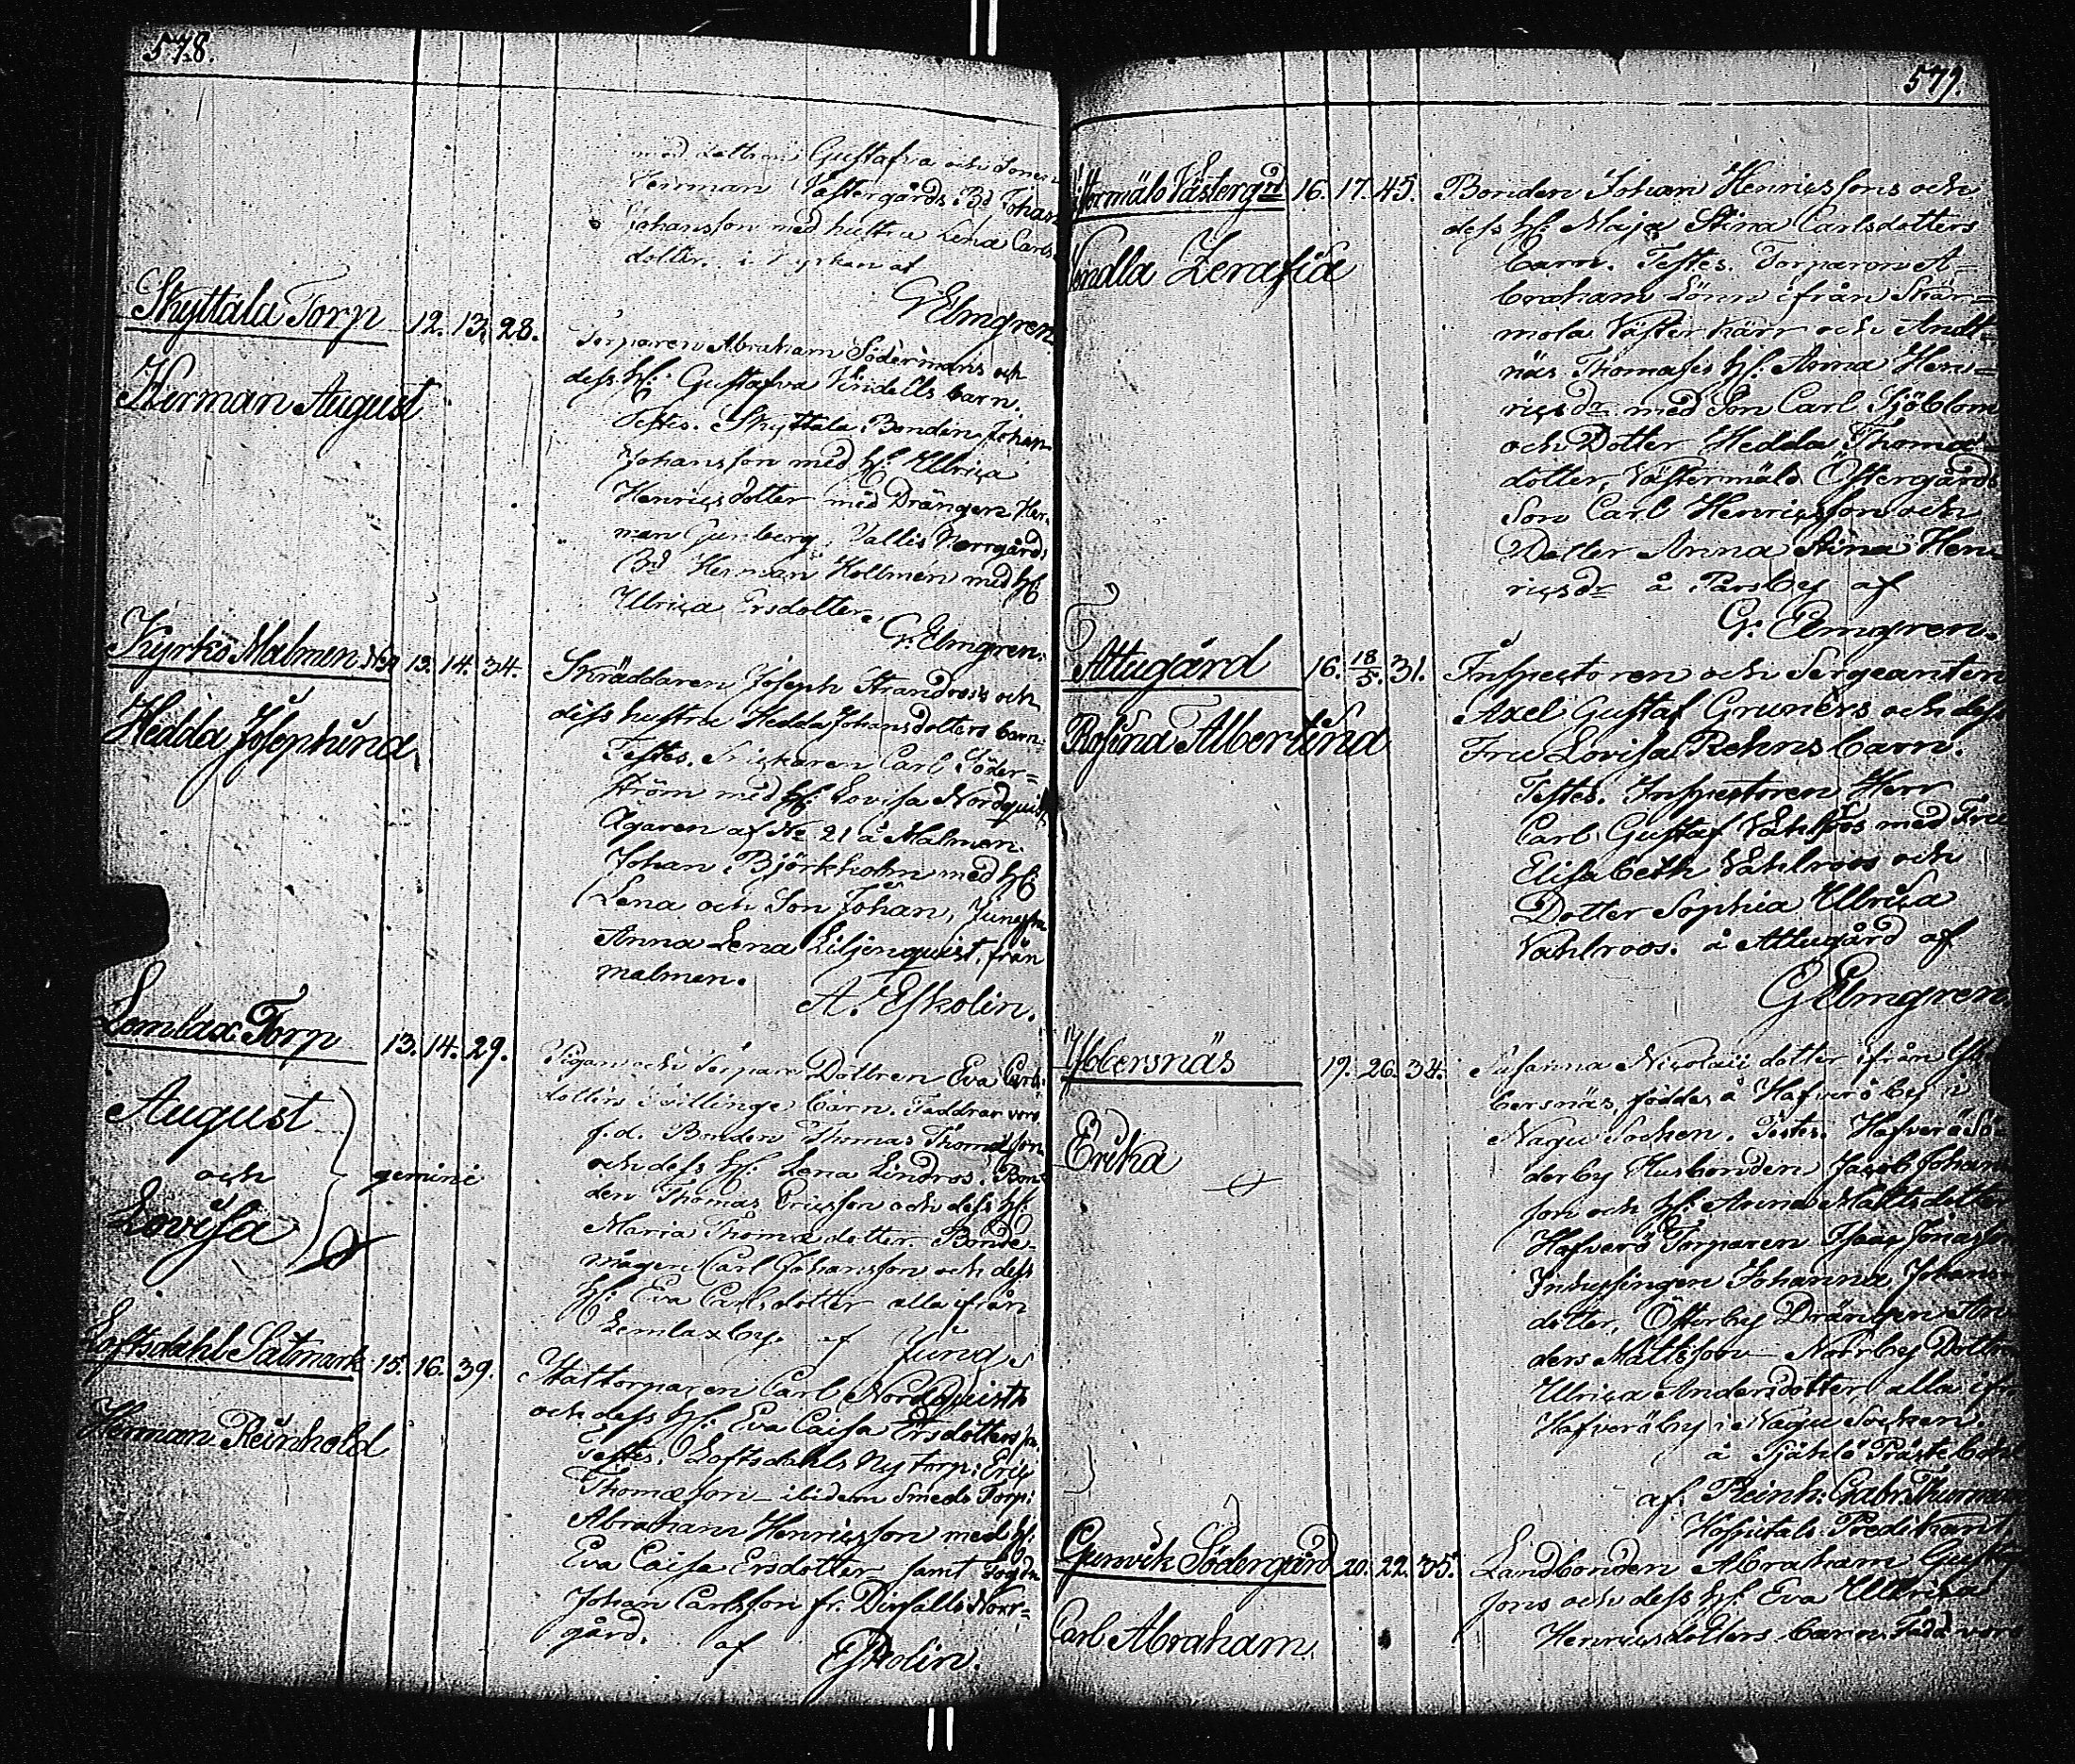 578.
med dottren Gustafva och sonen
Herman Västergårds Bd Johan
Johansson med hustru Lena Carls
dotter. i Kyrkan af
G Elmgren.
Skyttala Torp 12. 13. 28.
Torparen Abraham Södermans och
dess H: Gustafva Vindells barn.
Herman August
Testes. Skyttala Bonden Johan
Johansson med H: Ulrica
Henricsdotter med Drängen Her-
man Grönberg, Vallis Norrgårds
Bd Herman Hollmén med H:
Ulrica Ersdotter.
G. Elmgren.
Kyrko Malmen 13. 14. 34.
Skräddaren Joseph Strandroos och
dess hustru Hedda Johansdotters barn.
Hedda Josephina
Testes. Snickaren Carl Söder=
ström med H: Lovisa Nordquist
Ägaren af No 21 å Malmen
Johan Björkholm med H:
Lena och Son Johan, Jungfru
Anna Lena Liljenquist, från
malmen.
A. Eskolin.
Lemlax Torp 13. 14. 29.
Pigan och Torpare Dottren Eva Carls
dotters barn. Faddrar voro
f.d. Bonden Thomas Thomasson
och dess H: Lena Lindros. Bon-
den Thomas Ericsson och dess H:
Maria Thomædotter. Bonde-
mågen Carl Johansson och dess
H: Eva Carlsdotter alla ifrån
Lemlaxby. af Jung
August
och
Lovisa
gemini
Loftsdahl Sätmark 15. 16. 39.
Stattorparen Carl Nordqvists
och dess H: Eva Caisa Ersdotters
Herman Reinhold
Testes. Loftsdahls Ny torp: Eric
Thomæson ibidem Smeds Torp:
Abraham Henricsson med H:
Eva Caisa Ersdotter samt
Johan Carlsson fr. Norr=
gård. af Eskolin.
579.
Västermälö Västergrd 16. 17. 45.
Bonden Johan Henricssons och
dess H: Maja Stina Carlsdotters
Vendla Zerafia
barn. Testes. Torparen A=
braham Lönn ifrån Skär=
mola Västerkärr och Andt=
näs Thomases H: Anna Hen=
ricsdr med Son Carl Sjöblom
och Dotter Hedda Thomæ
dotter, Västermälö Östergårds
Son Carl Henricsson och
Dotter Anna Stina Hen
ricsdr å Parsby af
G: Elmgren.
Attugård 16. 18/5. 31.
Inspectoren och Sergeanten
Axel Gustaf Gruners och dess
Fru Lovisa Rehns barn.
Rosina Albertina
Testes. Inspectoren Herr
Carl Gustaf Vahlroos med Fru
Elisabeth Vahlroos och
Dotter Sophia Ulrica
Vahlroos. å Attugård af
G Elmgren
Ybbersnäs 19. 26. 34.
Susanna Nicolaii dotter ifrån Yb
bersnäs, föddes å Hafverö by i
Nagu Socken. Testes. Hafverö Sö
derby Husbonden Jacob Johans
son och H: Anna Mattsdotter
Erika
Hafverö Torparen Isaac Jonasson
Inhysingen Johanna Johans
dotter, Österby Drängen An
ders Mattsson Norrby Dottren
Ulrica Andersdotter alla ifr
Hafveröby i Nagu Socken
å Själö Prästebohl
af Reinh: Gabr: Thurman
Hospitals Predikant
Gunvik Södergård 20. 22. 35.
Landbonden Abraham Gustafs
sons och dess H: Eva Ulrica
Carl Abraham
Henricsdotters barn. Fadd. voro